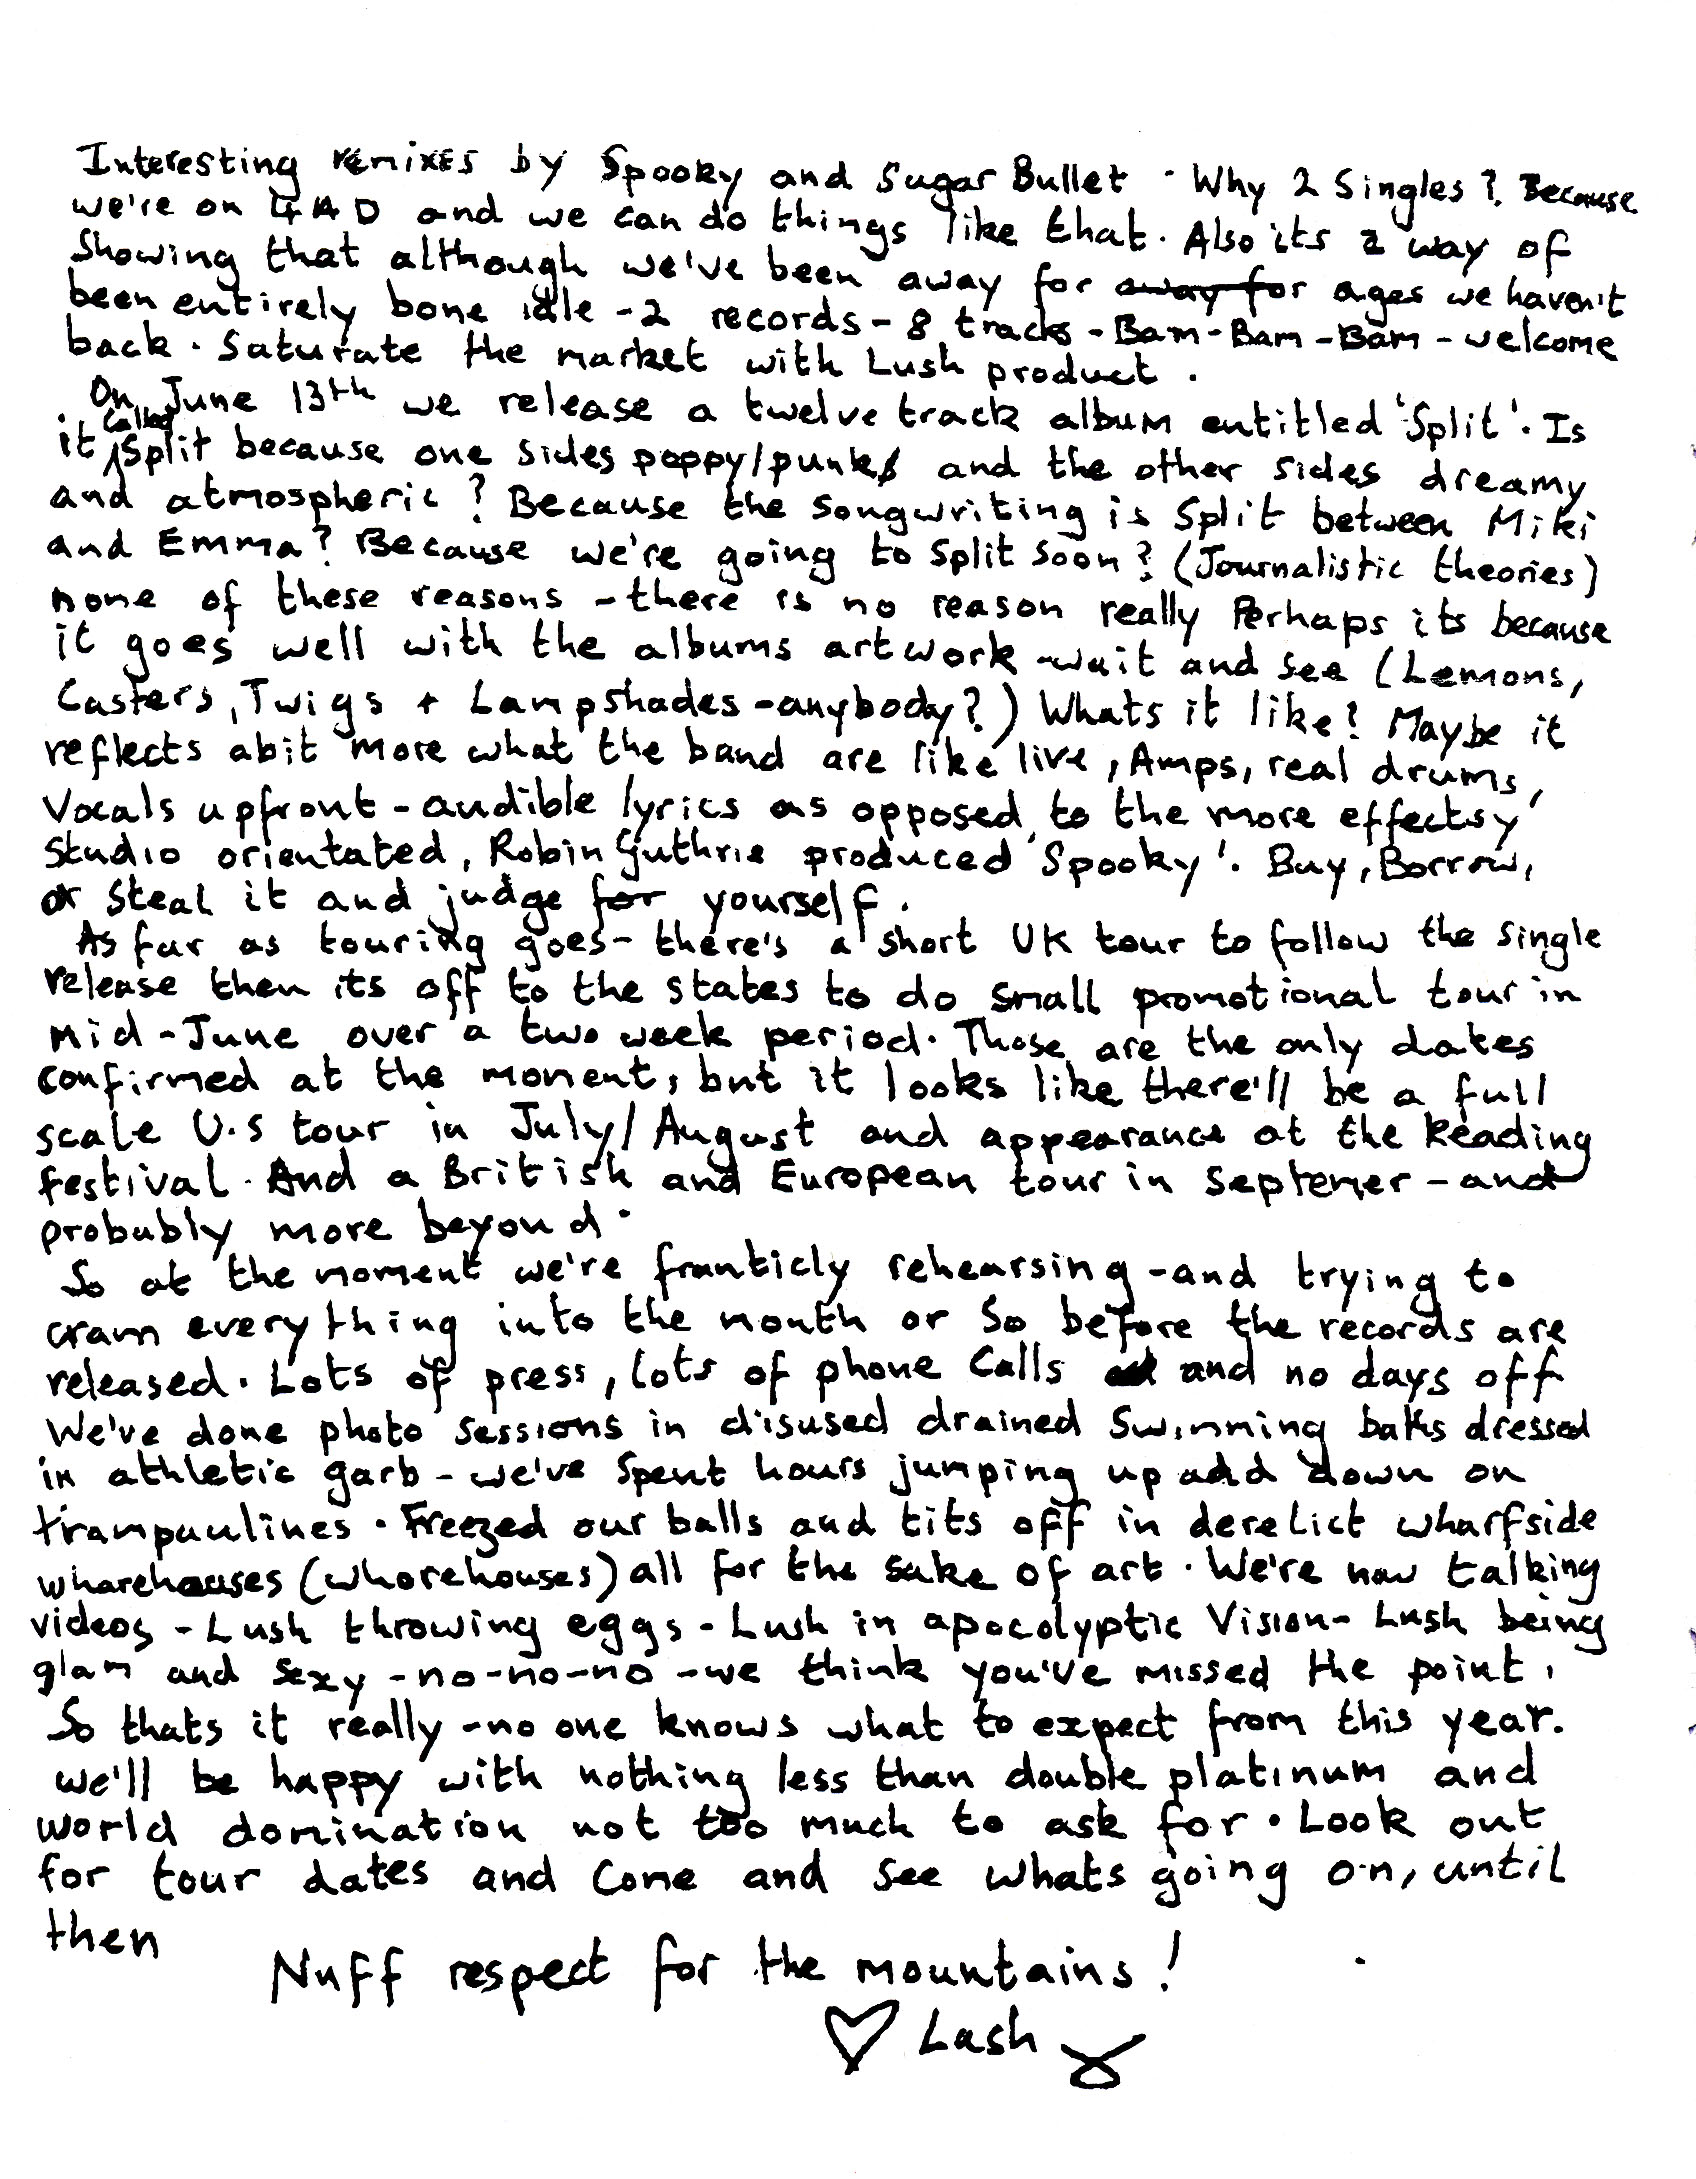 Interesting remixes by Spooky and Sugar Bullet. Why 2 Singles? Because
we're on 4AD and we can do things like that. Also its a way of
Showing that although we've been away for away for ages we haven't
been entirely bone idle - 2 records - 8 tracks - Bam - Bam - Bam - welcome
back. Saturate the market with Lush product.
On June 13th we release a twelve track album entitled 'Split'. Is
it called Split because one sides poppy/punk and the other sides dreamy
and atmospheric? Because the songwriting is Split between Miki
and Emma? Because we're going to split soon? (Journalistic theories)
none of these reasons - there is no reason really Perhaps its because
it goes well with the albums artwork - wait and see (Lemons,
Casters, Twigs + Lampshades - anybody?) Whats it like? Maybe it
reflects abit more what the band are like live, Amps, real drums,
Vocals upfront - audible lyrics as opposed to the more effectsy
Studio orientated, Robin Guthrie produced 'Spooky'. Buy, Borrow,
or Steal it and judge for yourself.
As far as touring goes - there's a short UK tour to follow the single
release then its off to the states to do small promotional tour in
Mid-June over a two week period. Those are the only dates
confirmed at the moment, but it looks like there'll be a full
scale U.S tour in July/August and appearance at the Reading
festival. And a British and European tour in Septemer - and
probably more beyond.
So at the moment we're franticly rehearsing - and trying to
cram everything into the month or so before the records are
released. Lots of press, lots of phone calls and no days off
We've done photo sessions in disused drained Swimming baths dressed
in athletic garb - we've spent hours jumping up and down on
trampaulines. Freezed our balls and tits off in derelict wharfside
wharehouses (whorehouses) all for the sake of art. We're now talking
videos - Lush throwing eggs - Lush in apocolyptic Vision - Lush being
glam and sexy - no - no - no - we think you've missed the point.
So thats it really - no one knows what to expect from this year.
we'll be happy with nothing less than double platinum and
world domination not too much to ask for. Look out
for tour dates and come and see whats going on, until
then
Nuff respect for the mountains!
Lush